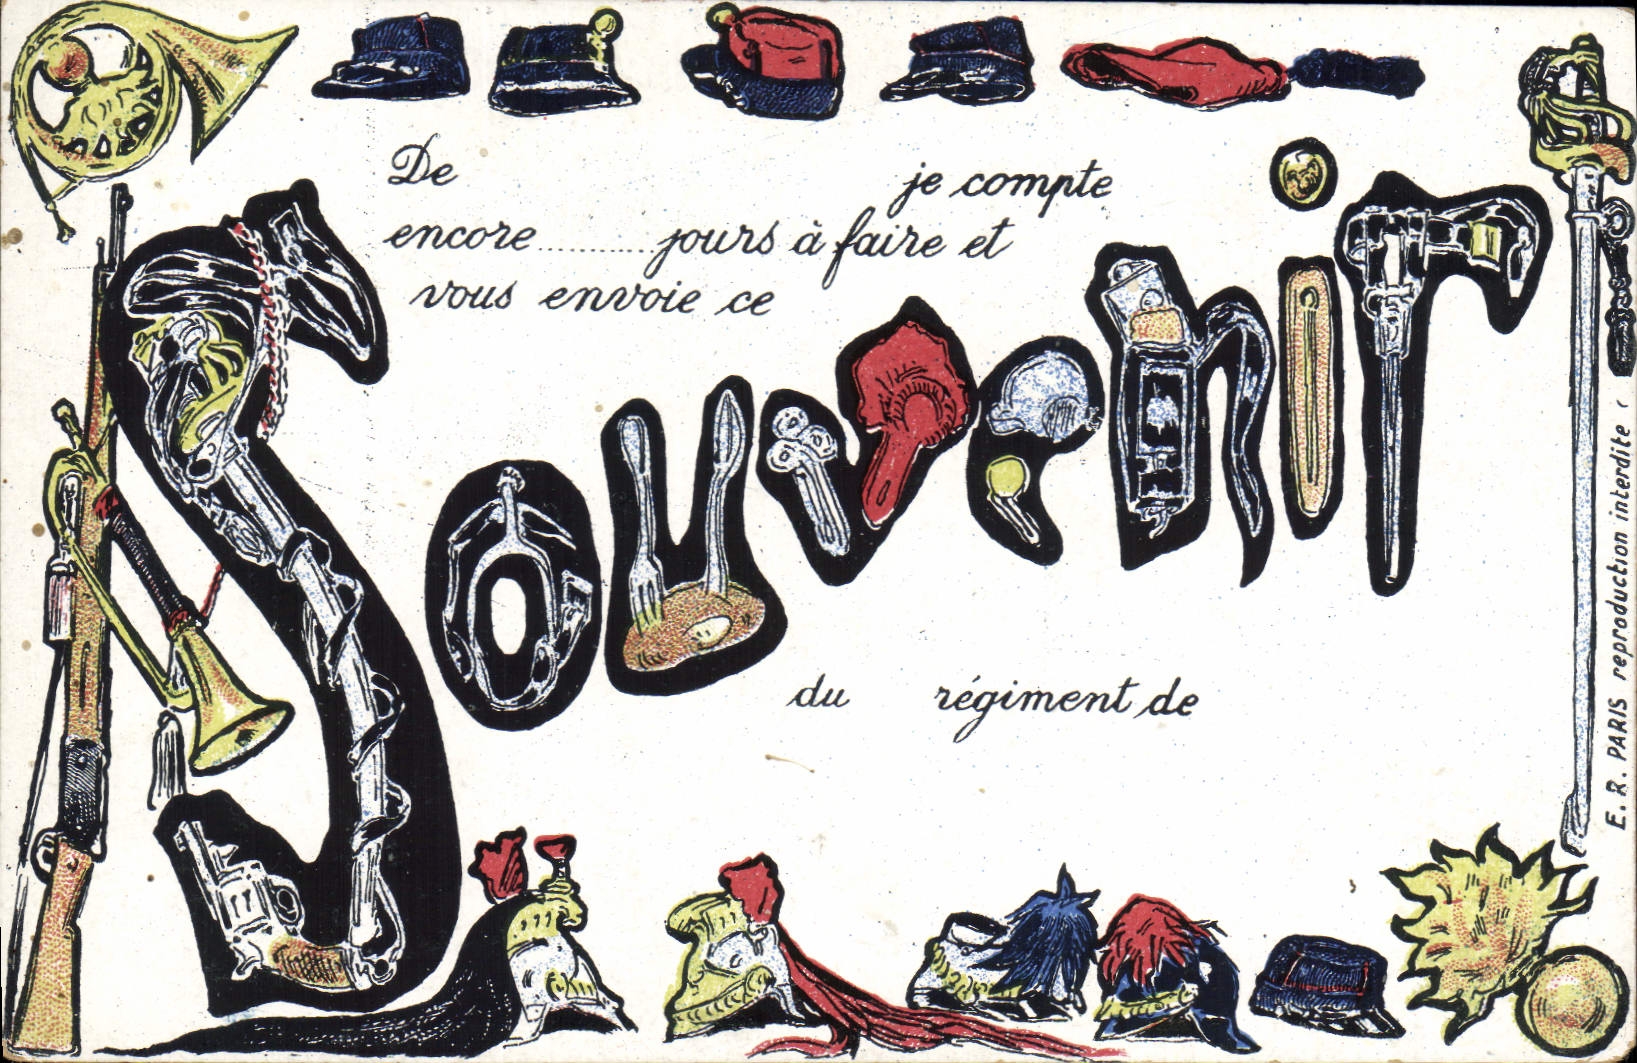 De je compte
encore..........jours à faire et
vous envoie ce
Souvenir
du régiment de
E. R. PARIS reproduction interdite